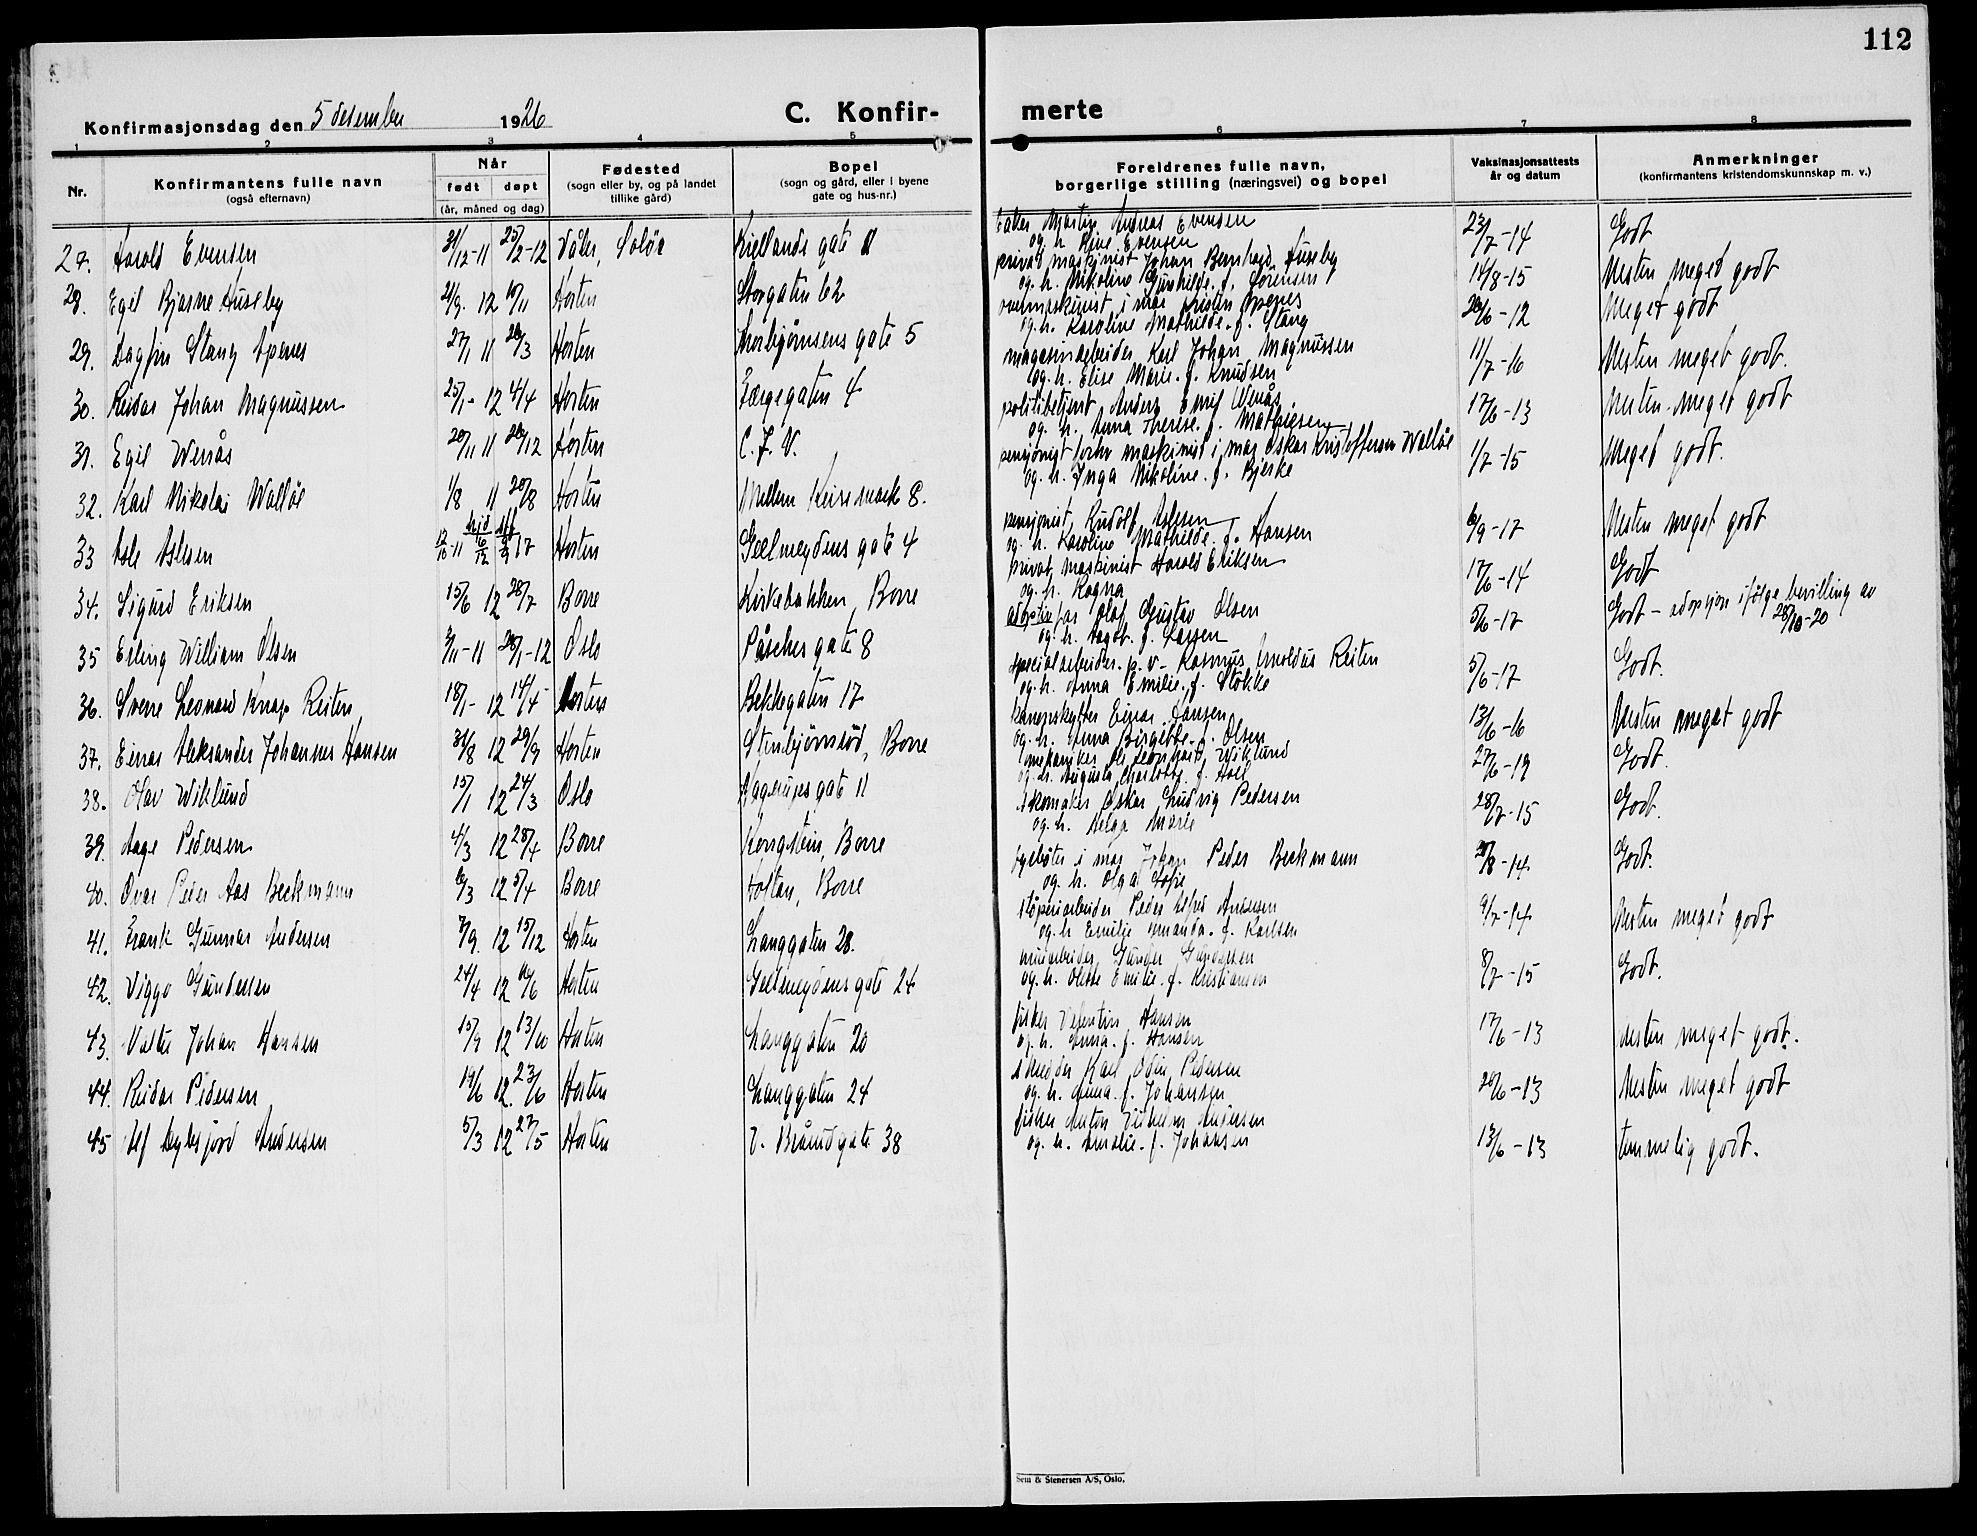 112
Konfirmasjonsdag den 5 desember 1926
C. Konfir-
merte
1 2 3 4 5 6 7 8
Nr.
Konfirmantens fulle navn
(også efternavn)
Når
født døpt
(år, måned og dag)
Fødested
(sogn eller by, og på landet
tillike gård)
Bopel
(sogn og gård, eller i byene
gate og hus-nr.)
Foreldrenes fulle navn,
borgerlige stilling (næringsvei) og bopel
Vaksinasjonsattests
år og datum
Anmerkninger
(konfirmantens kristendomskunnskap m. v.)
27. Harald Evensen 31/12-11 25/2-12 Våler, Solør Kiellands gate 11
Martin Andreas Evensen
og h. Evensen 23/7-14 Godt
28. Egil Bjarne Huseby 21/9 12 10/11 Horten Storgaten 62
privat maskinist Johan Bernhard Huseby
og h. Nikoline Gunhilde f. Sørensen 14/8-15 Nesten meget godt
29. Dagfin Stang Apenes 27/1 11 26/3 Horten Thorbjørnsens gate 5
Apenes
og h. Karoline Mathilde f. Stang 26/6-12 Meget godt
30. Reidar Johan Magnussen 25/1-12 4/4 Horten Færgegaten 4
magasinarbeider Karl Johan Magnussen
og h. Elise Marie f. Knudsen 11/7-16 Nesten meget godt.
31. Egil Wenås 20/11 11 26/12 Horten C. J. V.
politibetjent Anders Emil Wenås
og h. Anna Therese f. Mathisen 17/6-13 Nesten meget godt
32. Karl Nikolai Walløe 1/8 11 20/8 Horten Mellem Keisemark 8.
pensjonist forhv maskinist i mar Oskar Kristoffersen Walløe
og h. Inga Nikoline f. Bjerke 1/7-15 Meget godt.
33 Asle Aslesen 12/10-11 Horten Geelmeydens gate 4
pensjonist Rudolf Aslesen
og h. Karoline Mathilde f. Hansen 6/9-17 Nesten meget godt
34. Sigurd Eriksen 15/6 12 28/7 Borre Kirkebakken, Borre
privat maskinist Harald Eriksen
og h. Ragna 17/6-14 Godt
35 Erling William Olsen 3/11-11 28/1-12 Oslo Påsches gate 8
adoptivfar Olaf Gustav Olsen
og h. Dagot f. Larsen 5/6-17 Godt - adopsjon ifølge bevilling av
28/10-20
36. Sverre Leonard Knap Reiten 18/1-12 14/4 Horten Bekkegaten 17
spesialarbeider p. v. Rasmus Arnoldus Reiten
og h. Anna Emilie f. Stokke 5/6-17 Godt.
37. Einar Aleksander Johannes Hansen 31/8 12 29/9 Horten Stenbjørnsrød, Borre
kanonskytter Einar Hansen
og h. Anna Birgitte f. Olsen 13/6-16 Nesten meget godt
38. Olav Wiklund 15/1 12 24/3 Oslo Aagerupsgate 11
mekaniker Wiklund
og h. Augusta Charlotte f. 27/6-19 Godt.
39. Aage Pedersen 4/3 12 28/4 Borre Kongstein, Borre
skomaker Oskar Ludvig Pedersen
og h. Helga Marie 28/7-15 Godt.
40. Ivar Peder Aas Beckmann 6/3 12 5/4 Borre Holtan, Borre
i mar Johan Peder Beckmann
og h. Olga Sofie 20/8-14 Godt.
41. Frank Gunnar Andersen 7/9 12 15/12 Horten Langgaten 28.
støperiarbeider Peder Alfred Andersen
og h. Emilie Amanda f. Karlsen 9/7-14 Nesten meget godt
42. Viggo Gundersen 24/4 12 16/6 Horten Geelmeydensgate 24
minearbeider Gunder Gundersen
og h. Olette Emilie f. Kristiansen 8/7-15 Godt.
43. Valter Johan Hansen 15/9 12 13/10 Horten Langgaten 20
fisker Valentin Hansen
og h. Anna f. Hansen 17/6-13 Nesten meget godt.
44. Reidar Pedersen 14/6 12. 23/6 Horten Langgaten 24
snedker Karl Odin Pedersen
og h. Anna f. Johansen 20/6-13 Nesten meget godt
45 Alf Andersen 5/3 12 27/5 Horten V. Bråndgate 38
fisker Anton Vilhelm Andersen
og h. Amalie f. Johansen 13/6-13 temmelig godt.
Sem & Stenersen A/S, Oslo.